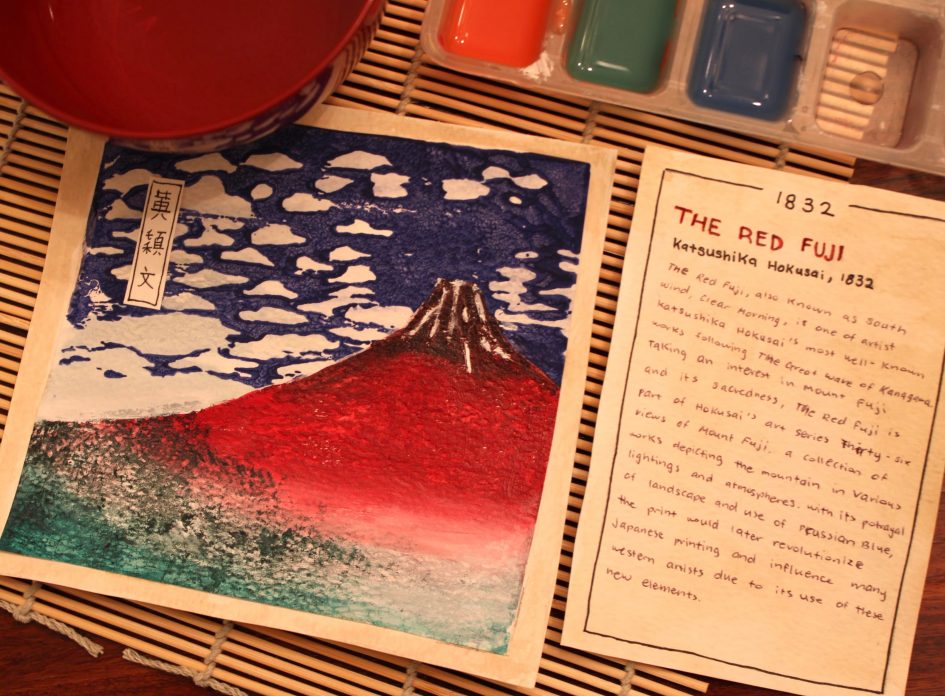 穎
文
1832
THE RED FUJI
Katsushika Hokusai, 1832
The Red Fuji, also known as South
wind, Clear Morning, is one of artist
Katsushika Hokusai's most well-known
works following The Great Wave of Kanagawa.
Taking an interest in Mount Fuji
and its sacredness, The Red Fuji is
part of Hokusai's art series Thirty-six
views of Mount Fuji, a collection of
works depicting the mountain in various
lightings and atmospheres. with its potrayal
of landscape and use of Prussian Blue,
the print would later revolutionize
Japanese printing and influence many
western artists due to its use of these
new elements.